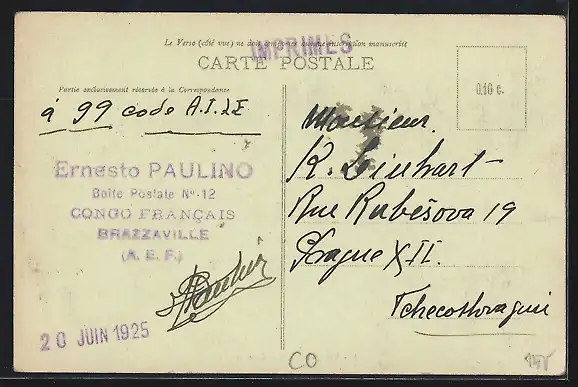 Le Verso (côté vue) ne doit comporter aucune inscription manuscrite
IMPRIMÉS
CARTE POSTALE
Partie exclusivement réservée à la Correspondance
à 99 code A.I.LE
0.10 c.
Ernesto PAULINO
Boite Postale Nº 12
CONGO FRANÇAIS
BRAZZAVILLE
(A. E. F.)
20 JUIN 1925
Monsieur.
K. Linhart
Rue Rubešova 19
Prague XII.
Tchecoslovaquie
CO